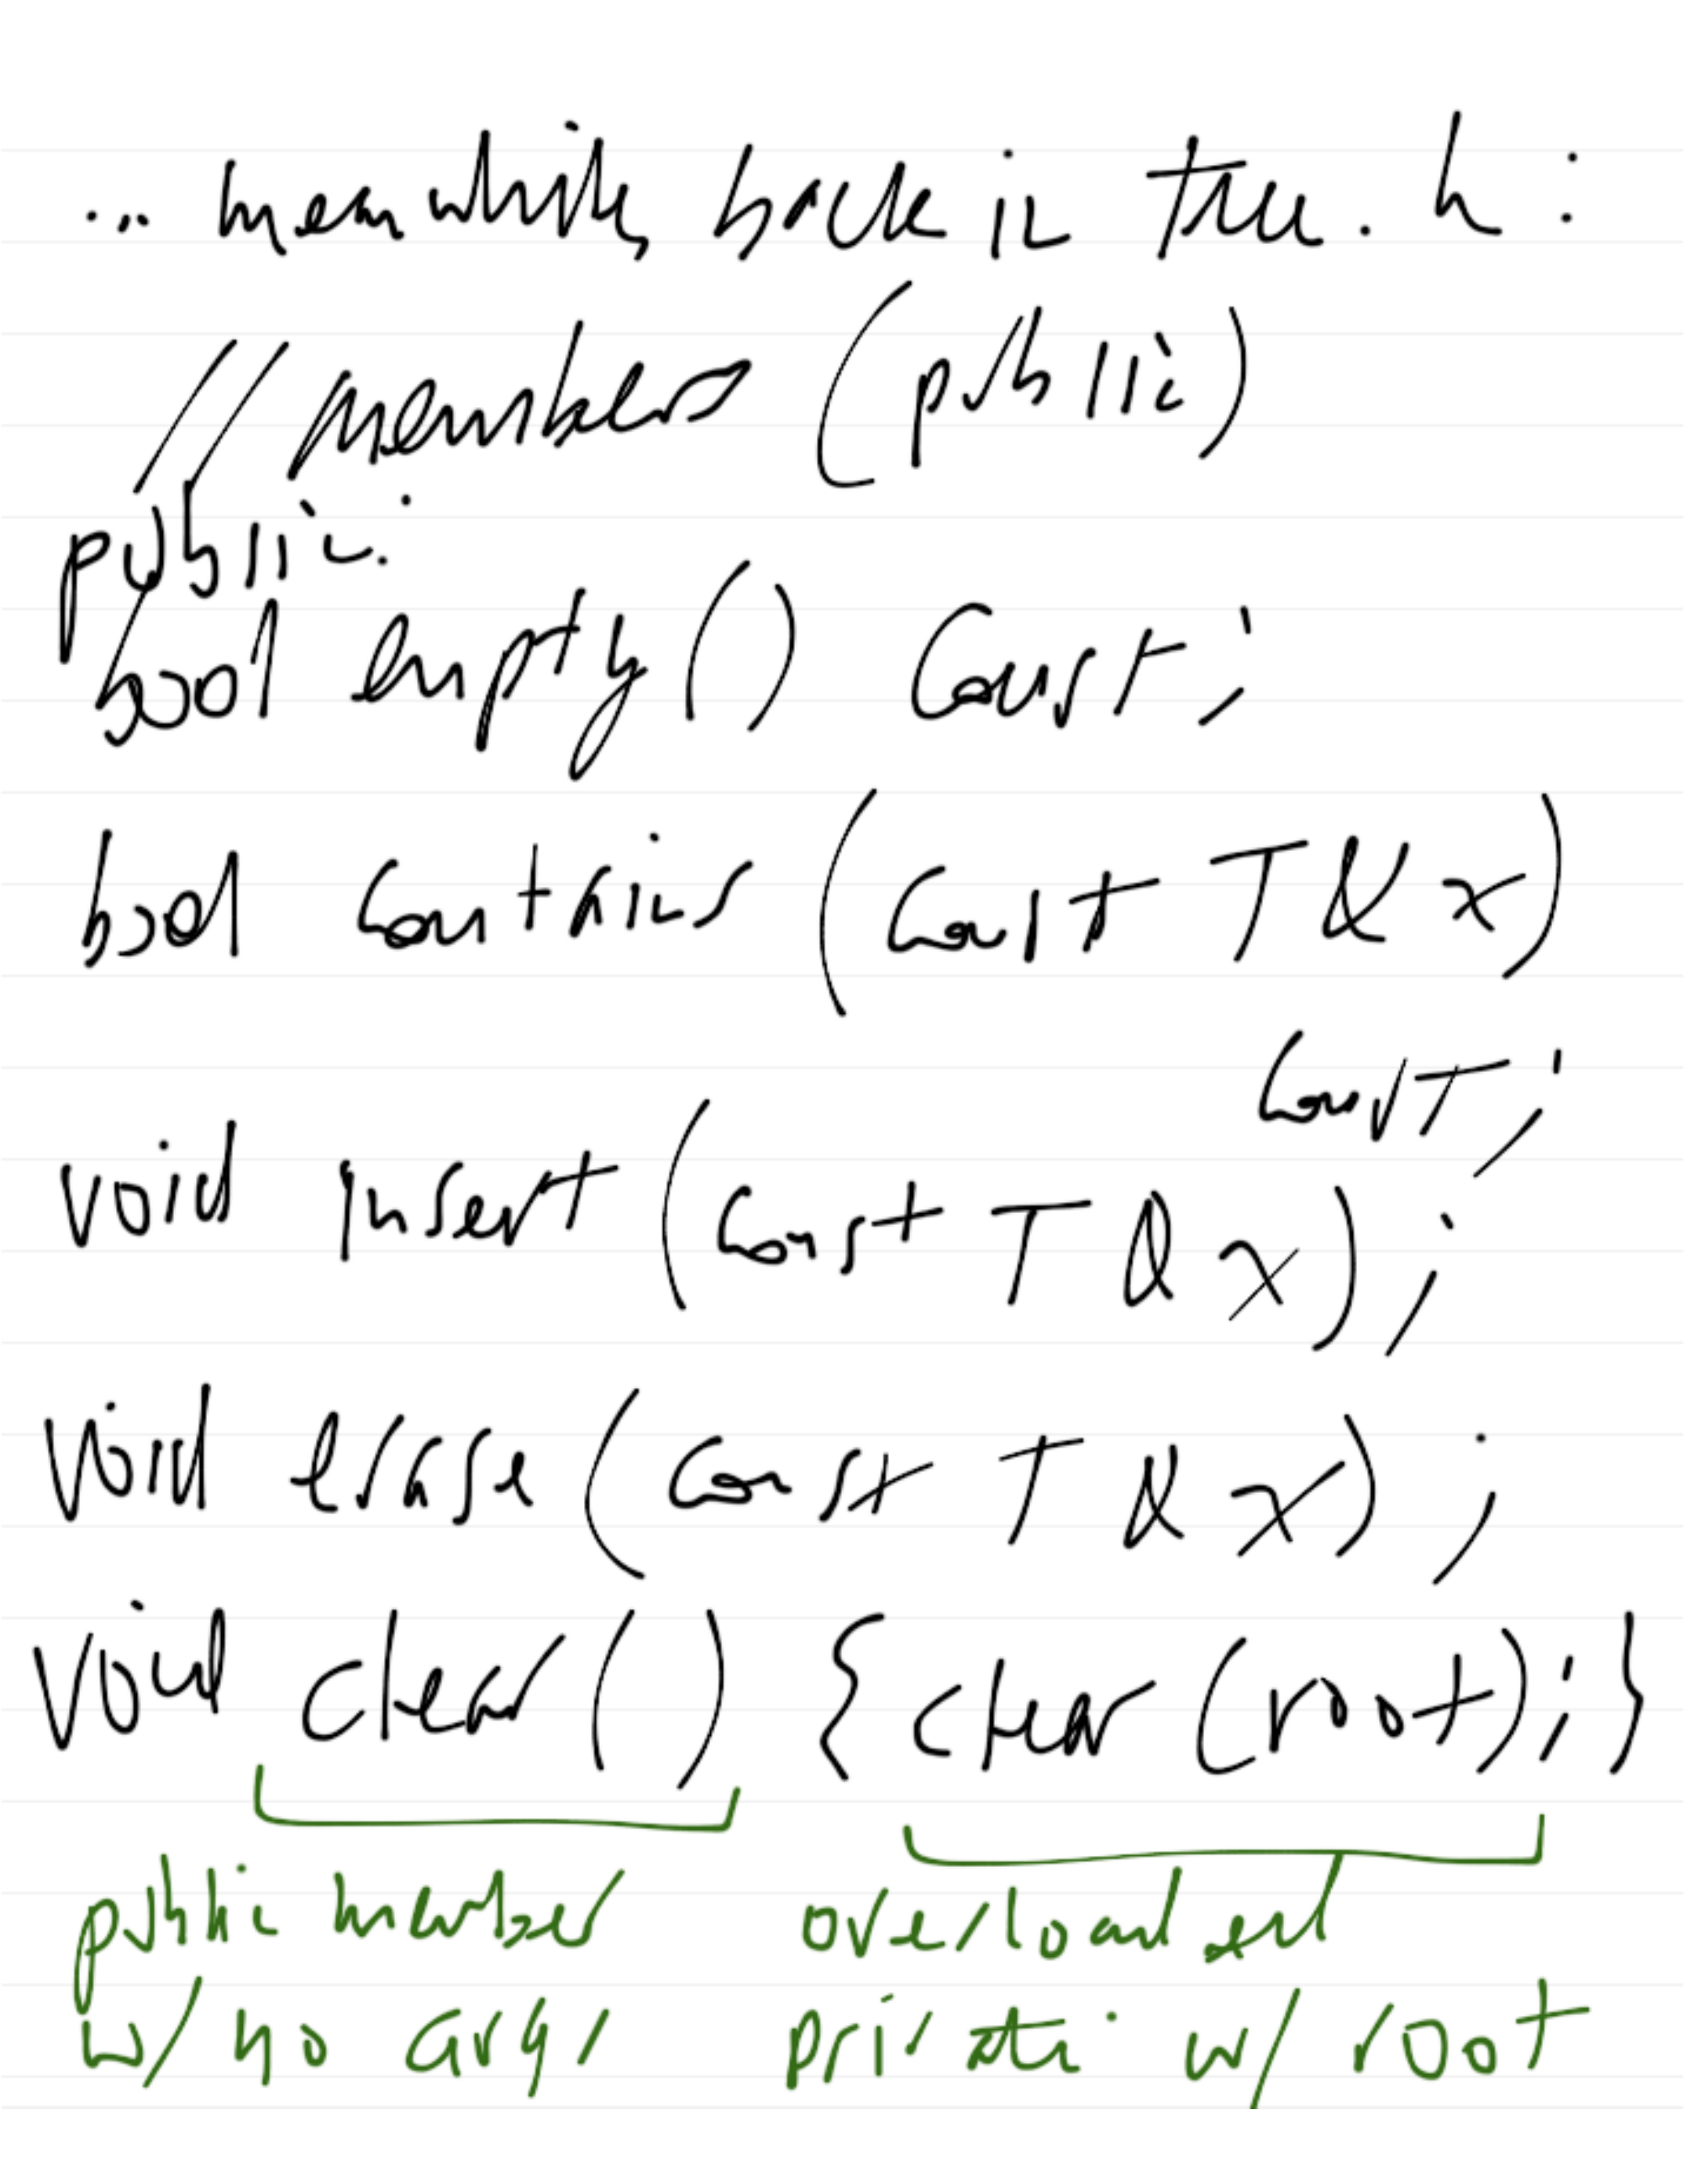 ... meanwhile, back in tree.h :
// members (public)
public:
bool empty() const;
bool contains (const T & x)
const;
void insert (const T & x);
void erase (const T & x);
void clear() { clear (root); }
public member overloaded
w/ no args private w/ root